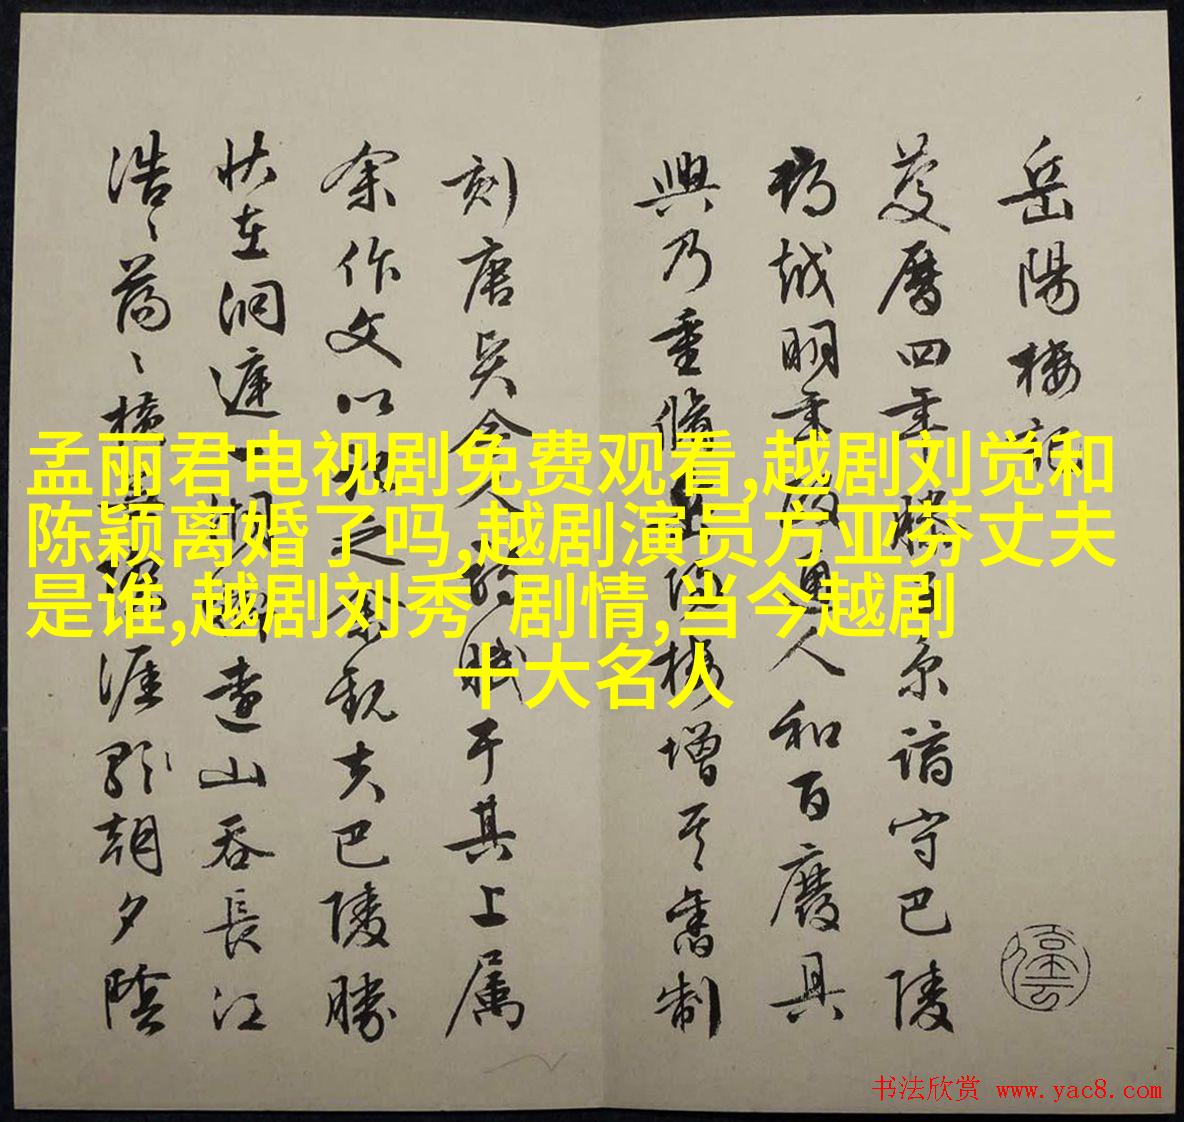 岳陽樓記
慶曆四年滕子京謫守巴陵
郡越明年政通人和百廢具
興乃重脩岳陽樓增其舊制
刻唐賢今人詩賦于其上属
余作文以記之余觀夫巴陵勝
狀在洞庭一湖銜遠山吞長江
浩〻蕩〻横無際涯朝夕陰
孟丽君电视剧免费观看,越剧刘觉和
陈颖离婚了吗,越剧演员方亚芬丈夫
是谁,越剧刘秀 剧情,当今越剧
十大名人
书法欣赏 www.yac8.com